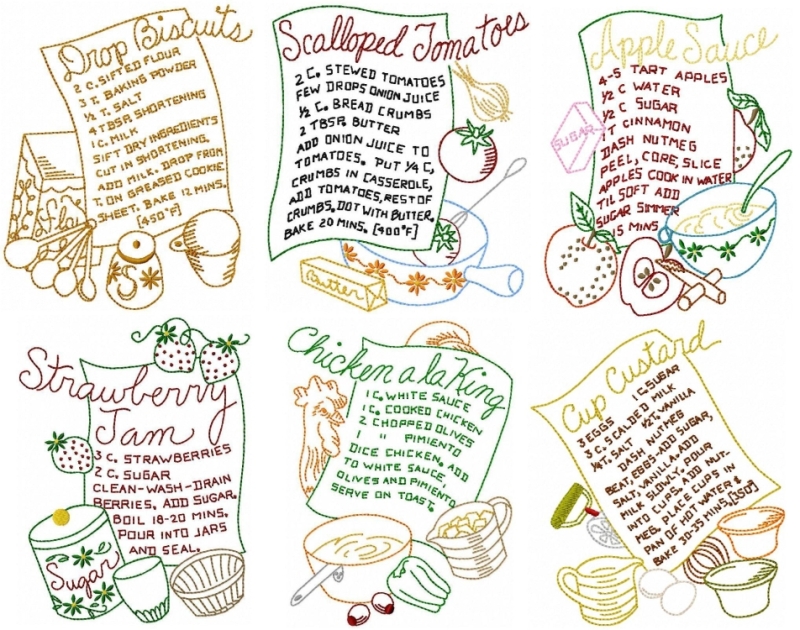 Drop Biscuits
2 C. SIFTED FLOUR
3 T. BAKING POWDER
1/2 T. SALT
4 TBSP. SHORTENING
1 C. MILK
SIFT DRY INGREDIENTS
CUT IN SHORTENING.
ADD MILK. DROP FROM
T, ON GREASED COOKIE
SHEET. BAKE 12 MINS.
[450°F]
Flour
S
Scalloped Tomatoes
2 C. STEWED TOMATOES
FEW DROPS ONION JUICE
1/2 C. BREAD CRUMBS
2 TBSP. BUTTER
ADD ONION JUICE TO
TOMATOES. PUT 1/4 C,
CRUMBS IN CASSEROLE,
ADD TOMATOES, REST OF
CRUMBS. DOT WITH BUTTER.
BAKE 20 MINS. [400°F]
Butter
Apple Sauce
4-5 TART APPLES
1/2 C WATER
1/2 C SUGAR
1 T CINNAMON
DASH NUTMEG
PEEL, CORE, SLICE
APPLES COOK IN WATER
TIL SOFT ADD
SUGAR SIMMER
15 MINS
SUGAR
Strawberry
Jam
3 C. STRAWBERRIES
2 C. SUGAR
CLEAN-WASH-DRAIN
BERRIES, ADD SUGAR.
BOIL 18-20 MINS.
POUR INTO JARS
AND SEAL.
Sugar
Chicken a la King
1 C. WHITE SAUCE
1 C. COOKED CHICKEN
2 CHOPPED OLIVES
1 " PIMIENTO
DICE CHICKEN, ADD
TO WHITE SAUCE,
OLIVES AND PIMIENTO
SERVE ON TOAST.
Cup Custard
3 EGGS 1 C. SUGAR
3 C. SCALDED MILK
1/4 T. SALT 1/2 T. VANILLA
DASH NUTMEG
BEAT, EGGS-ADD SUGAR,
SALT, VANILLA. ADD
MILK SLOWLY. POUR
INTO CUPS. ADD NUT-
MEG. PLACE CUPS IN
PAN OF HOT WATER &
BAKE 30-35 MINS. [350°]